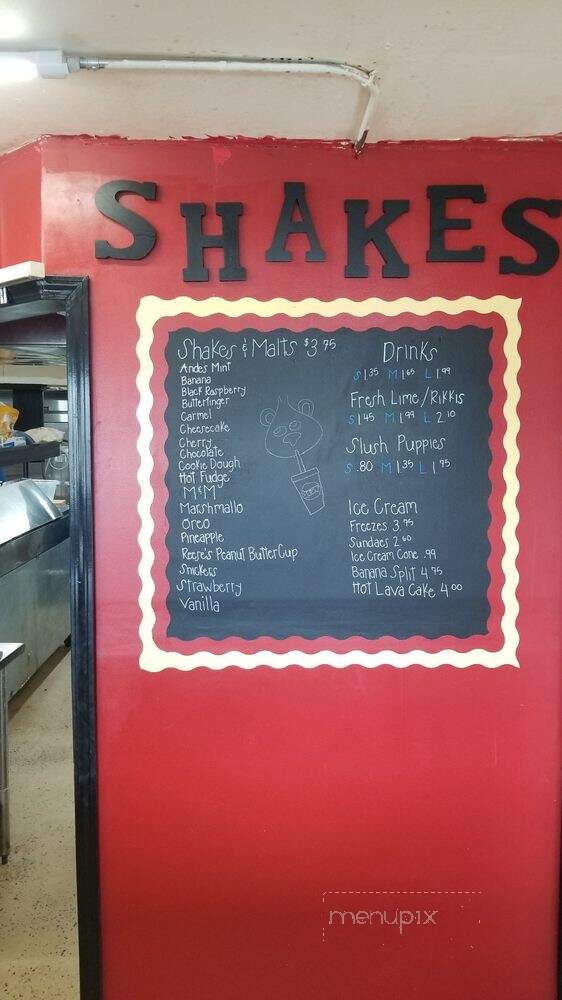 SHAKES
Shakes & Malts $3.75
Andes Mint
Banana
Black Raspberry
Butterfinger
Carmel
Cheesecake
Cherry
Chocolate
Cookie Dough
Hot Fudge
M&M
Marshmallo
Oreo
Pineapple
Reese's Peanut ButterCup
Snickers
Strawberry
Vanilla
Drinks
S 1.35 M 1.65 L 1.99
Fresh Lime/Rikkis
S 1.45 M 1.99 L 2.10
Slush Puppies
S .80 M 1.35 L 1.75
Ice Cream
Freezes 3.75
Sundaes 2.60
Ice Cream Cone .99
Banana Split 4.75
Hot Lava Cake 4.00
menupix